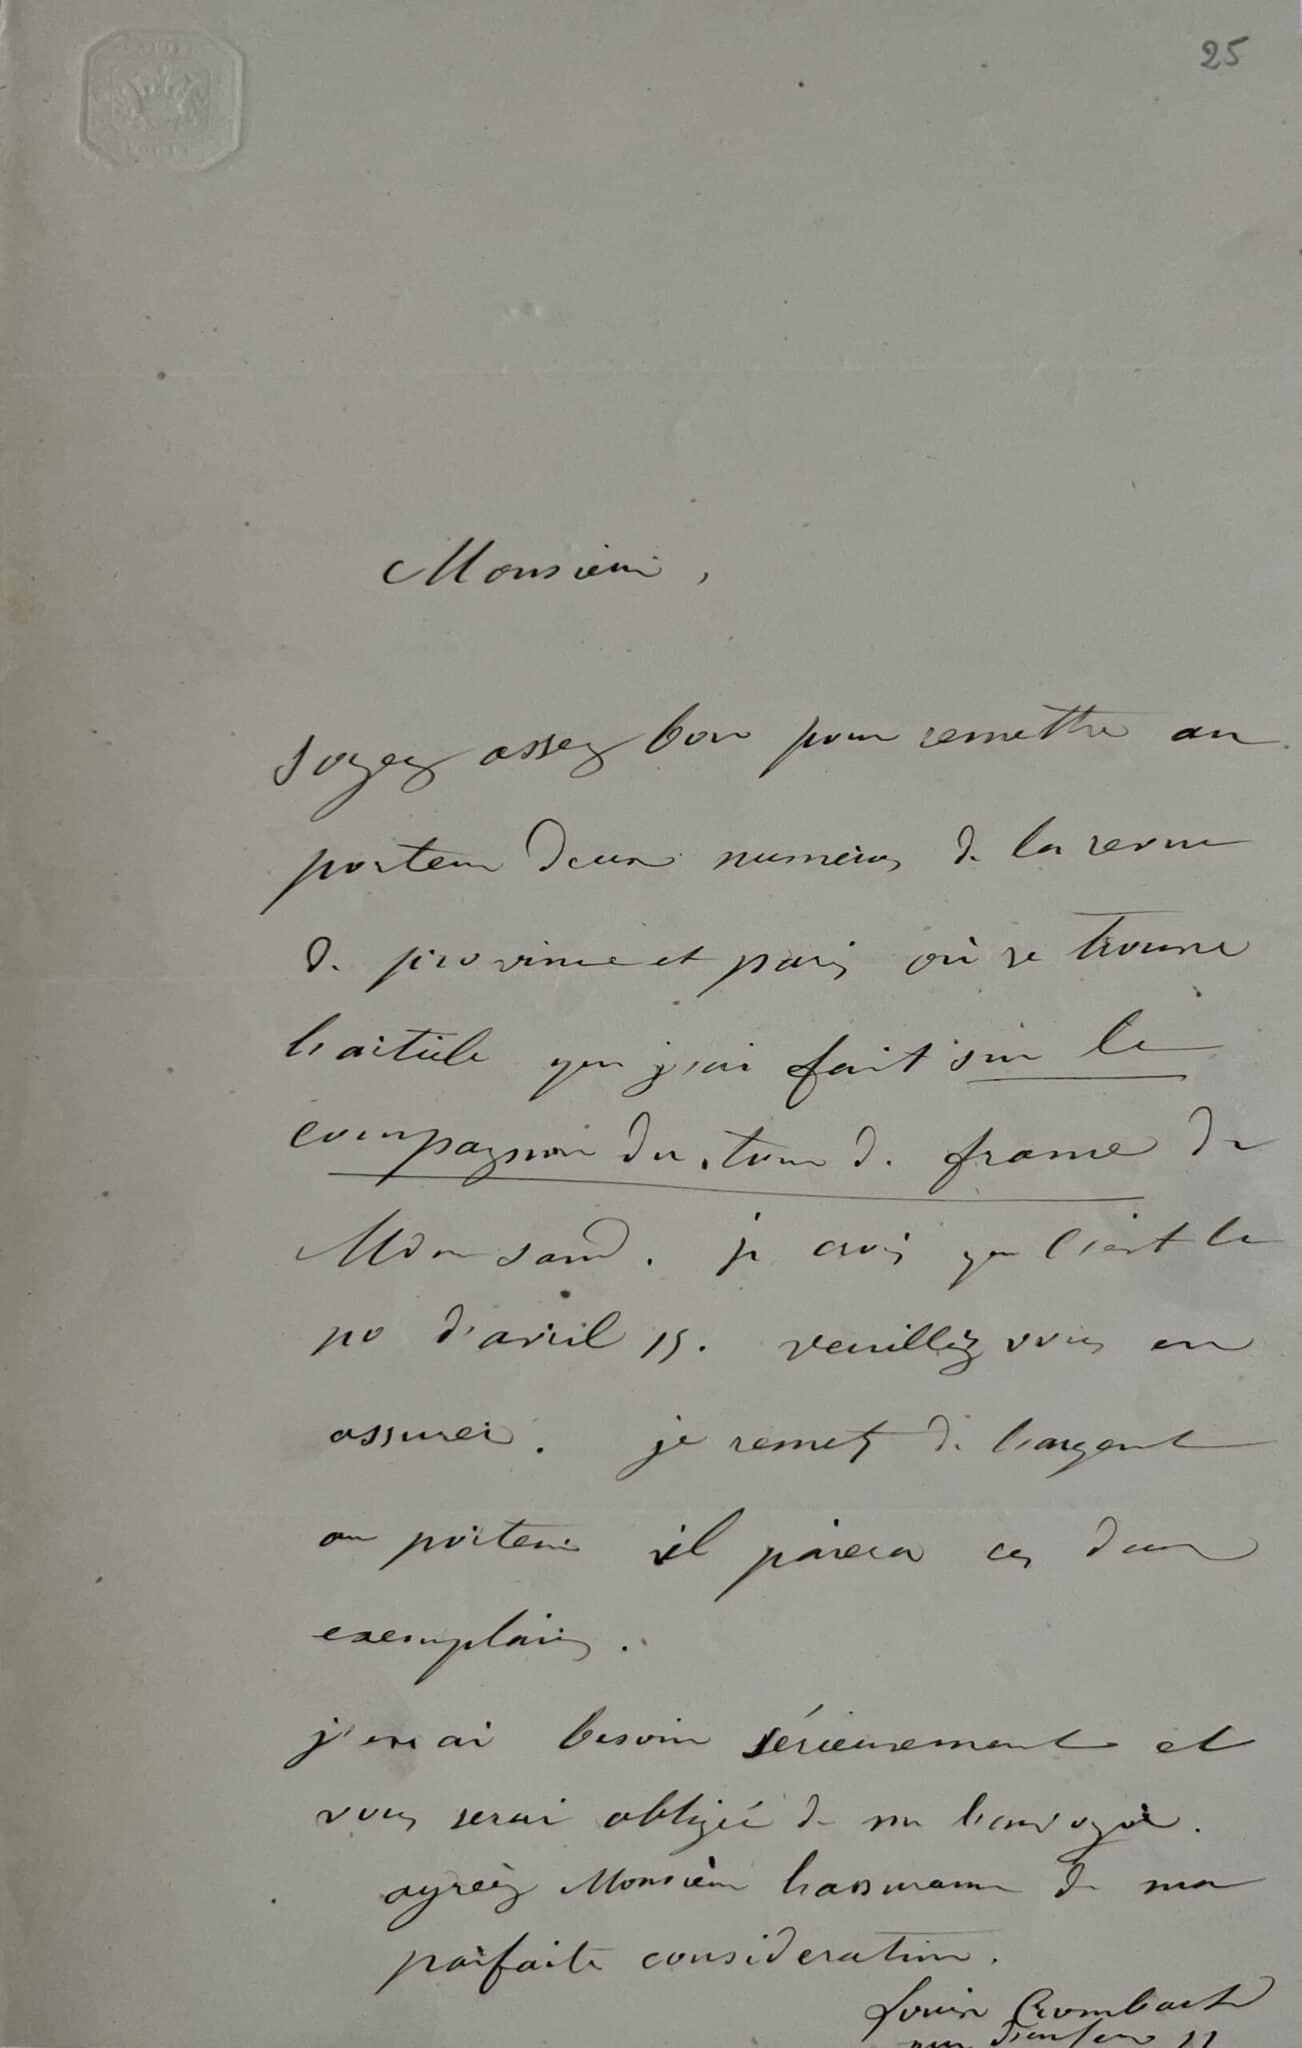 25
Monsieur,
soyez assez bon pour remettre au
porteur deux numéros de la revue
de province et paris où se trouve
l'article que j'ai fait sur le
compagnon du tour de france de
Mdm sand. je crois que c'est le
no d'avril 15. veuillez vous en
assurer. je remets de l'argent
au porteur il paiera ces deux
exemplaires.
j'en ai besoin sérieusement et
vous serai obligée de me l'envoyer.
agréez Monsieur l'assurance de ma
parfaite consideration.
Louise Crombach
rue